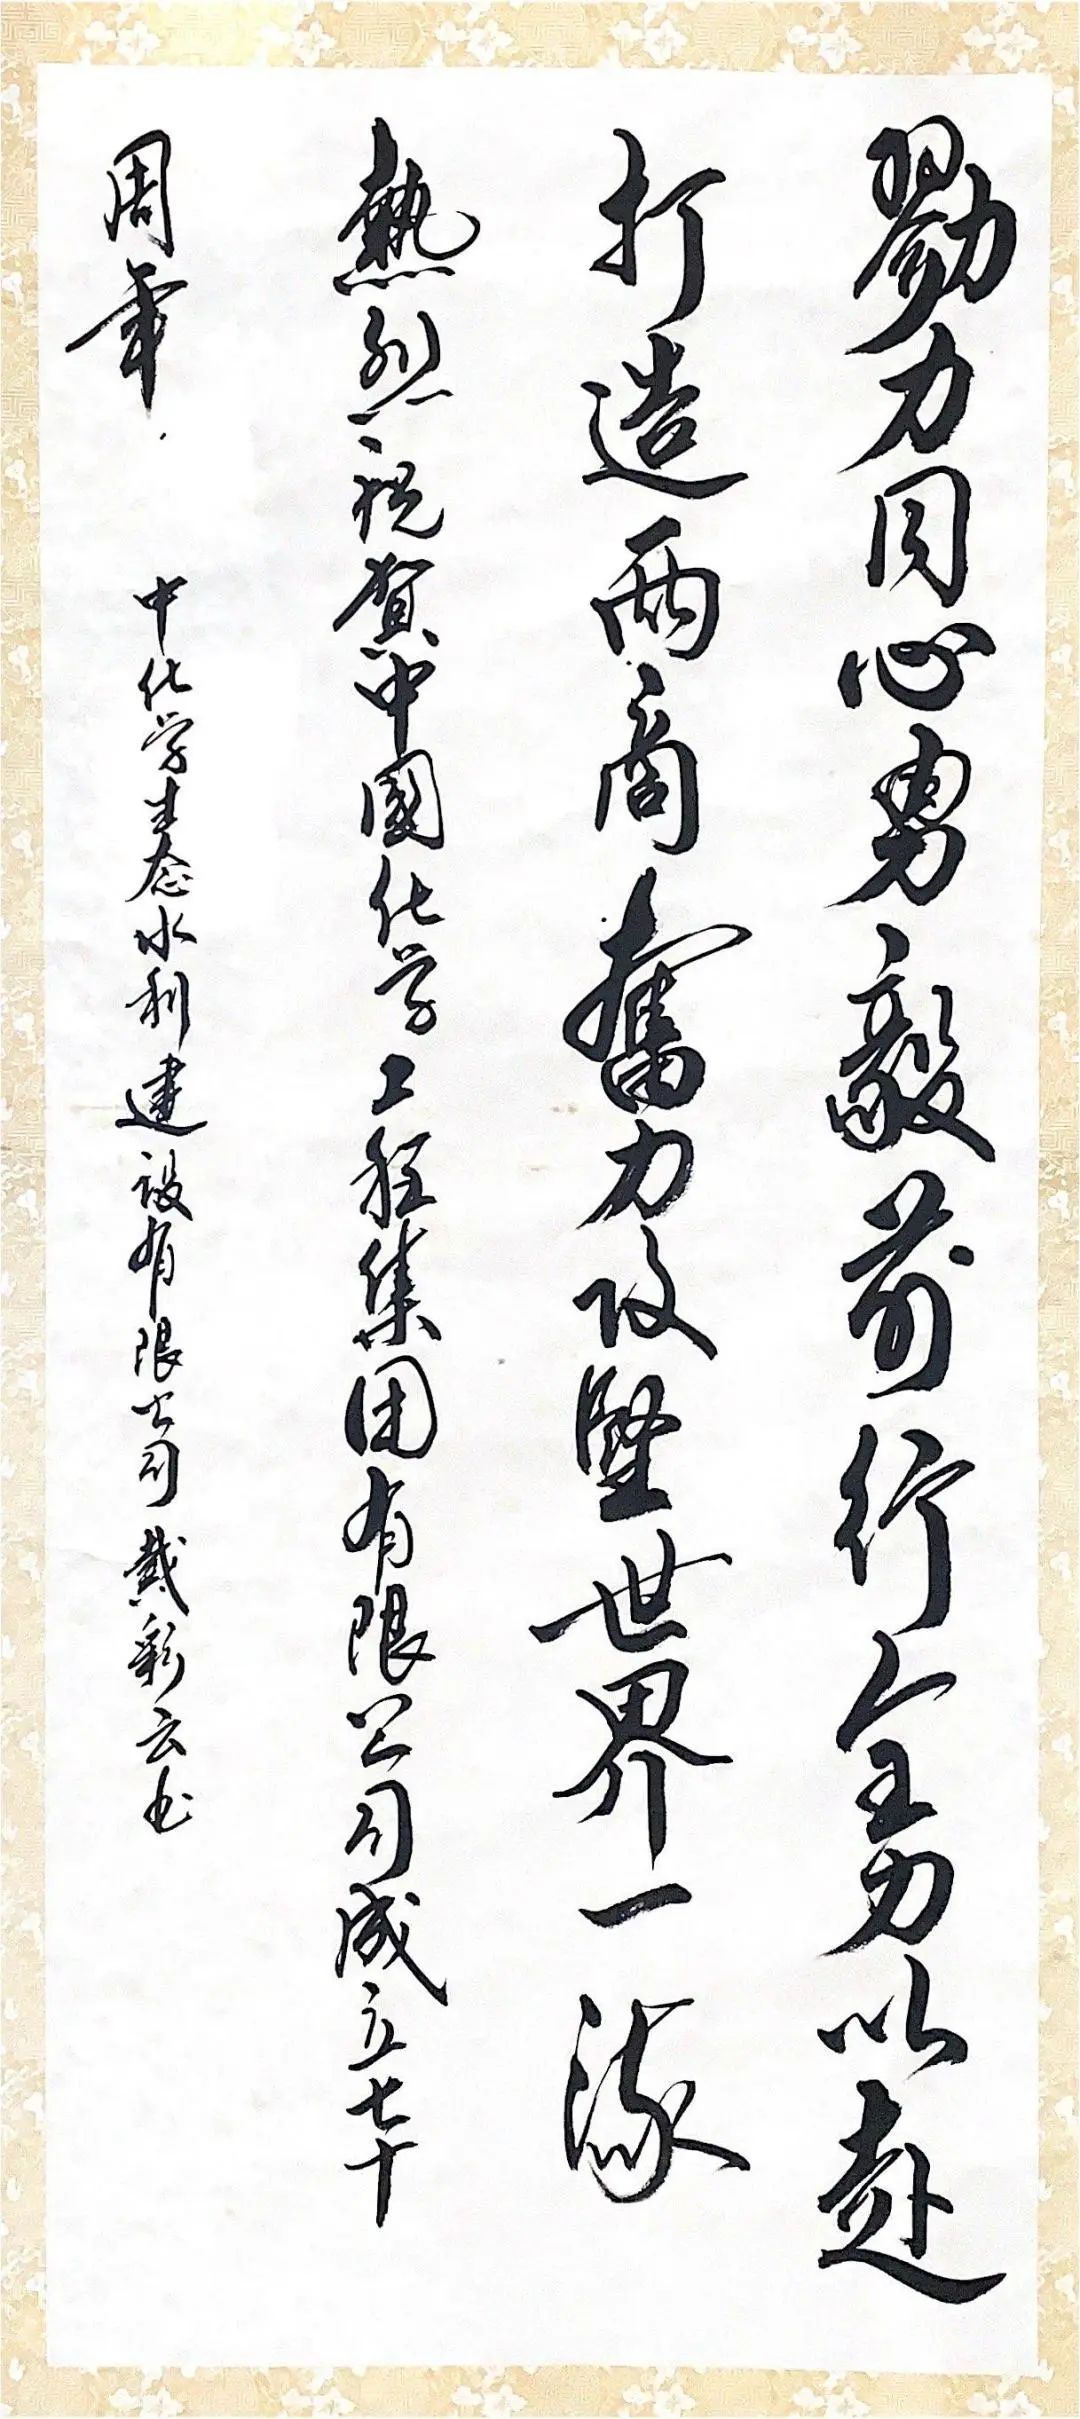 勠力同心勇毅前行全力以赴
打造兩商奮力攻堅世界一流
熱烈祝賀中國化学工程集团有限公司成立七十
周年
中化学生态水利建设有限公司戴彩云书